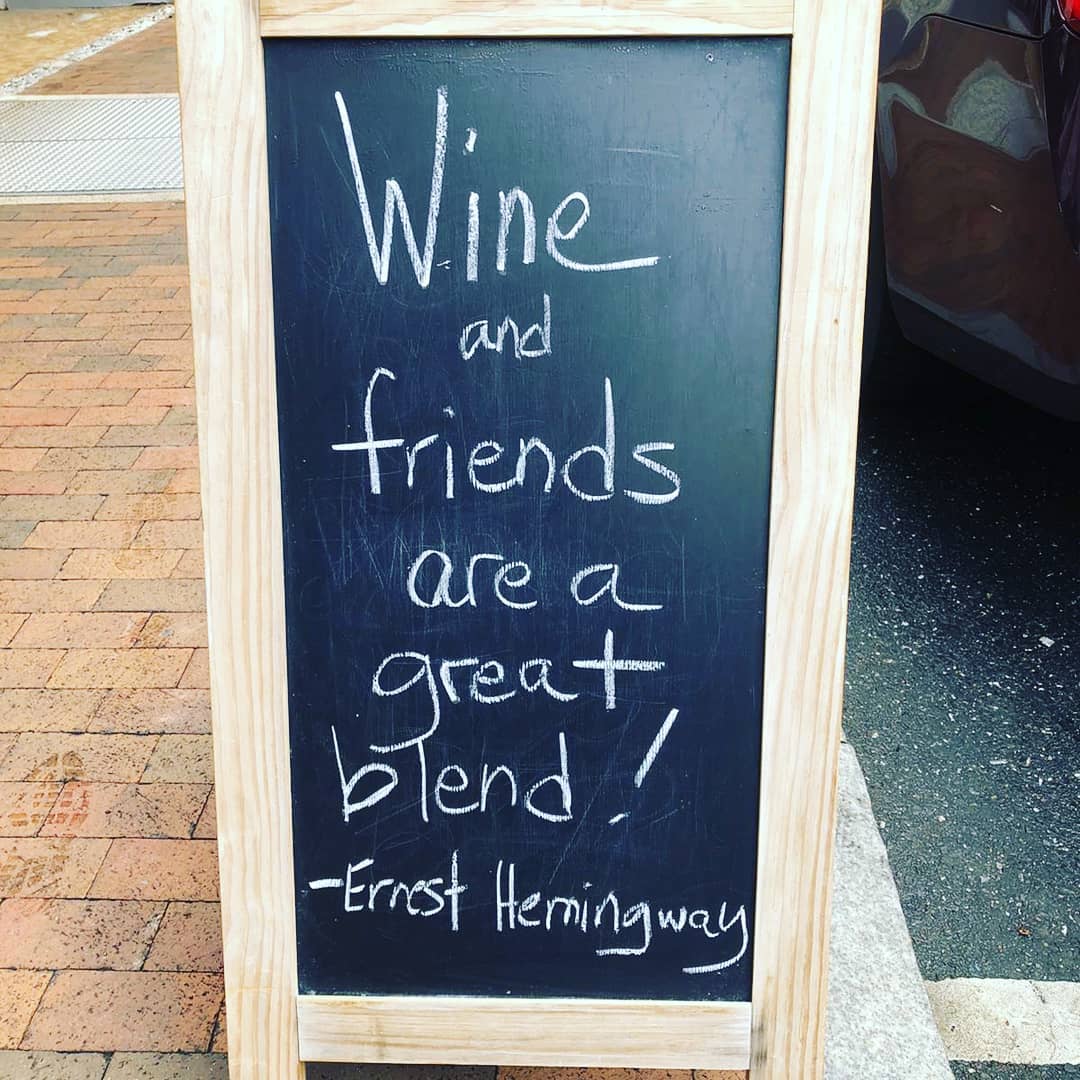 Wine
and
friends
are a
great
blend!
-Ernest Hemingway